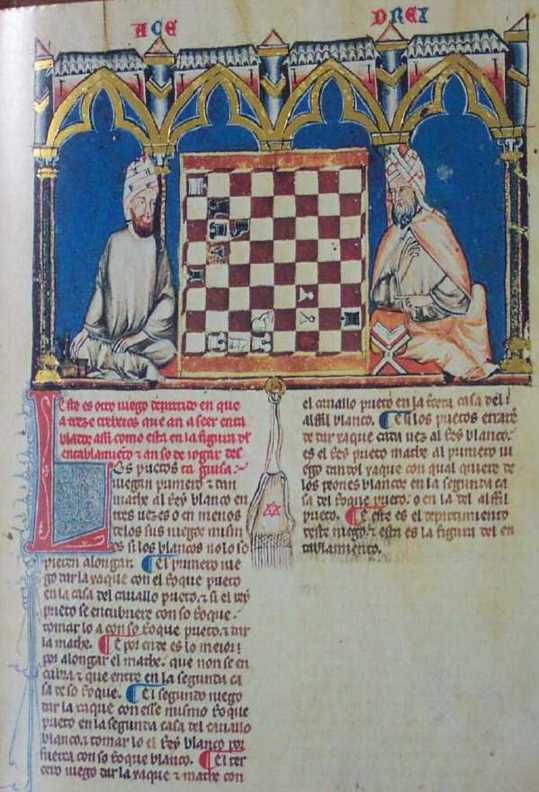 ACE DREX
Este es otro iuego departido en que
a treze trebeios que an a seer enta
blados assi como esta en la figura del
entablamiento & an se de iogar desta guisa.
Los prietos
iuegan primero & dan
mathe al Rey blanco en
tres uezes o en menos
delos sus iuegos mismos
si los blancos nolo so
pieren alongar. El primero iue
go dar la xaque con el Roque prieto
en la casa del cauallo prieto. & si el Rey
prieto se encubriere con so Roque.
tomar lo a con so Roque prieto. & dar
la mathe. E por ende es lo meior
por alongar el mathe. que non se en
cubra & que entre en la segunda ca
sa de so Roque. El segundo iuego
dar la xaque con esse mismo Roque
prieto en la segunda casa del cauallo
blanco. & tomar lo a el Rey blanco por
fuerça con so Roque blanco. El ter
cero iuego dar la xaque & mathe con
el cauallo prieto en la tercera casa del
alffil blanco. E si los prietos erraren
de dar xaque cada uez al Rey blanco.
es el Rey prieto mathe al primero iu
ego dandol xaque con qual quiere de
los peones blancos en la segunda ca
sa del Roque prieto. o en la del alffil
prieto. E este es el departimiento
deste iuego. & esta es la figura del en
tablamiento.